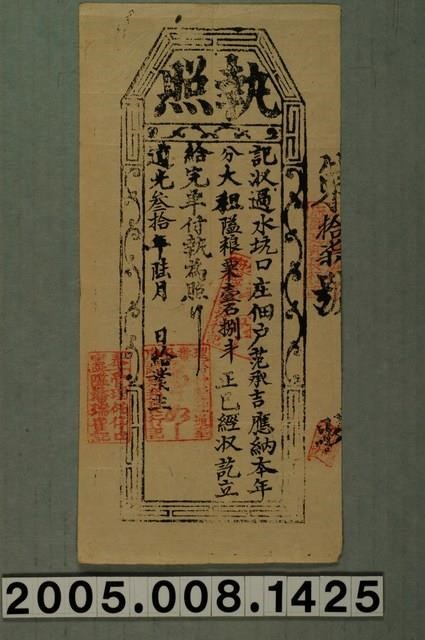 執照
記收過水坑口庄佃戶范承吉應納本年
分大租隘粮粟壹石捌斗正已經收訖立
給完單付執為照
道光叁拾年陸月 日給業主
拾柒號
2005.008.1425